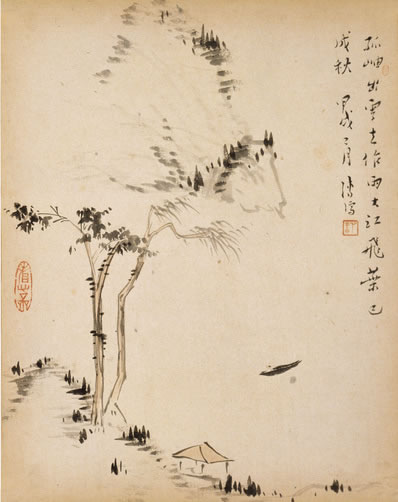 孤岫出雲去作雨大江飛葉已
成秋 甲戌三月 溥儒